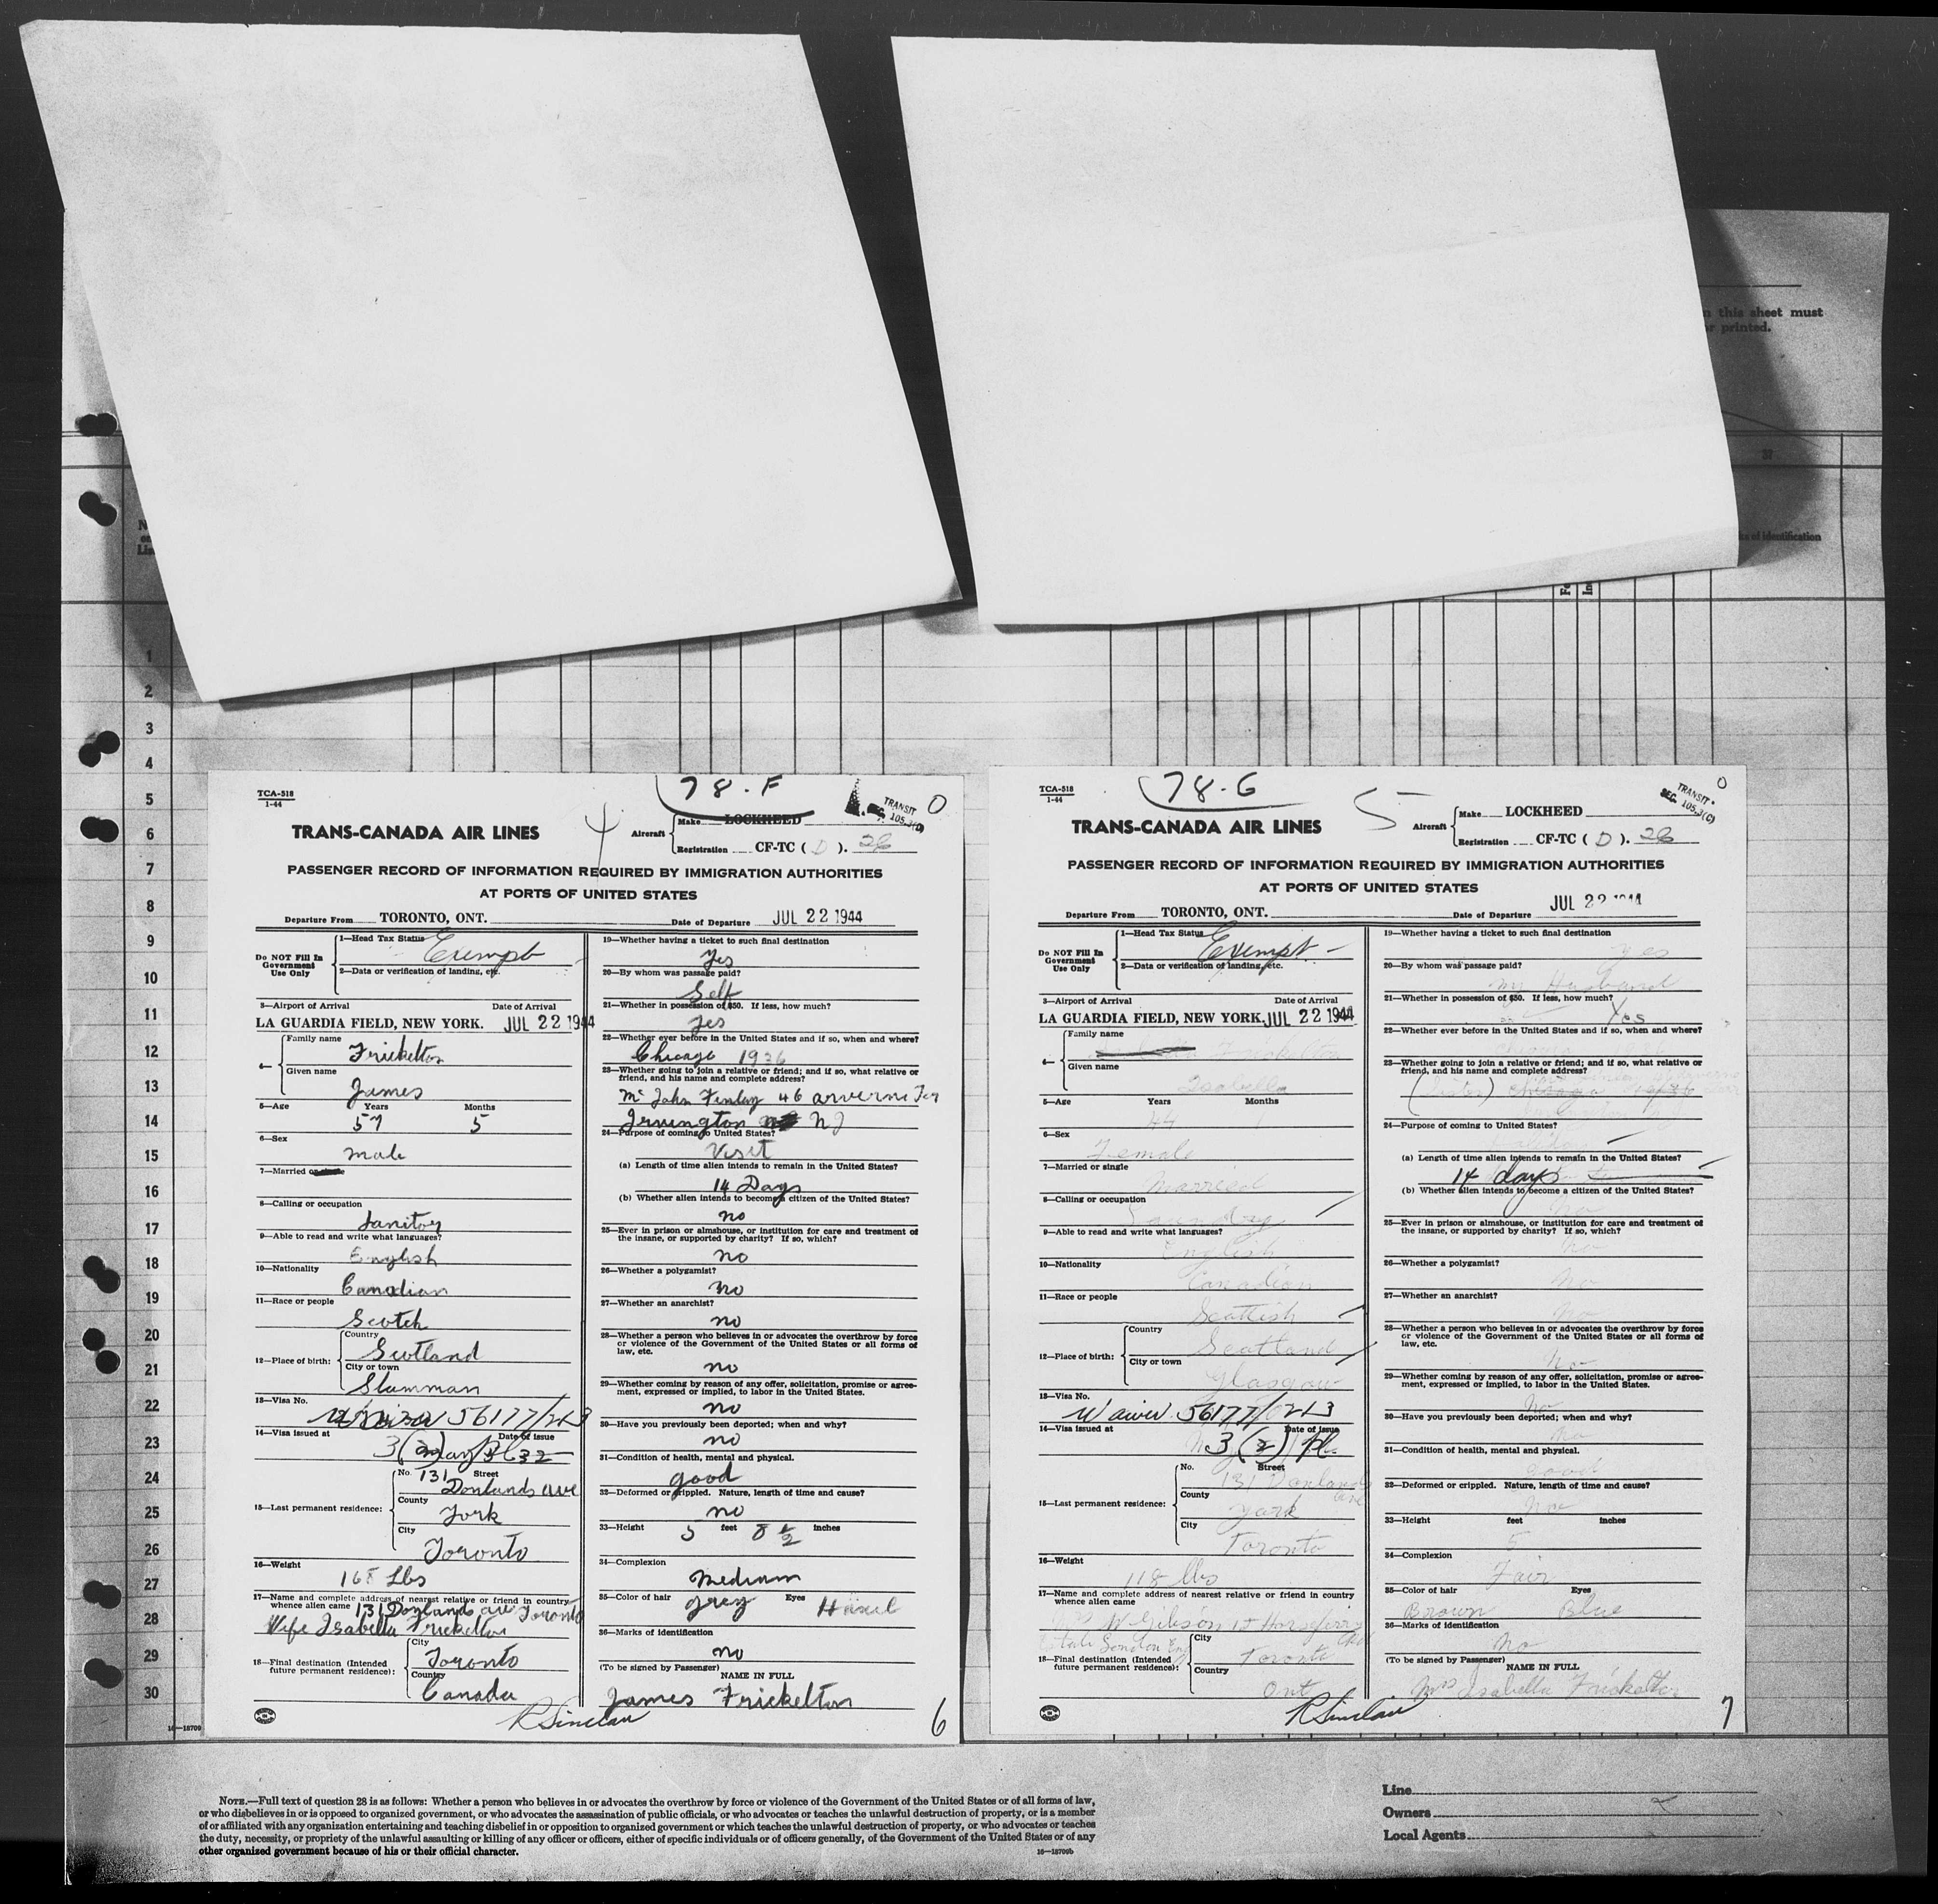 n this sheet must
r printed.
37
ks of identification
1
2
3
4
5
6
7
8
9
10
11
12
13
14
15
16
17
18
19
20
21
22
23
24
25
26
27
28
29
30
16—18709
TCA-518
1-44
78-F
4
TRANSIT
SEC. 105.3(C)
0
TRANS-CANADA AIR LINES
Aircraft
Make LOCKHEED
Registration CF-TC ( D ). 26
PASSENGER RECORD OF INFORMATION REQUIRED BY IMMIGRATION AUTHORITIES
AT PORTS OF UNITED STATES
Departure From TORONTO, ONT. Date of Departure JUL 22 1944
Do NOT Fill In
Government
Use Only
1—Head Tax Status Exempt
2—Data or verification of landing, etc.
3—Airport of Arrival Date of Arrival
LA GUARDIA FIELD, NEW YORK. JUL 22 1944
4—
Family name
Frickelton
Given name
James
5—Age Years Months
57 5
6—Sex
male
7—Married or single
8—Calling or occupation
Janitor
9—Able to read and write what languages?
English
10—Nationality
Canadian
11—Race or people
Scotch
12—Place of birth:
Country
Scotland
City or town
Slamman
13—Visa No.
Waiver 56177/213
14—Visa issued at Date of issue
3(2)
15—Last permanent residence:
No. 131 Street
Donlands ave
County
York
City
Toronto
16—Weight
168 Lbs
17—Name and complete address of nearest relative or friend in country
whence alien came 131 Donlands ave Toronto
Wife Isabella Frickelton
18—Final destination (Intended
future permanent residence):
City
Toronto
Country
Canada
19—Whether having a ticket to such final destination
Yes
20—By whom was passage paid?
Self
21—Whether in possession of $50. If less, how much?
Yes
22—Whether ever before in the United States and if so, when and where?
Chicago 1936
23—Whether going to join a relative or friend; and if so, what relative or
friend, and his name and complete address?
Mr John Finlay 46 arverne Ter
Irvington NJ
24—Purpose of coming to United States?
Visit
(a) Length of time alien intends to remain in the United States?
14 Days
(b) Whether alien intends to become a citizen of the United States?
no
25—Ever in prison or almshouse, or institution for care and treatment of
the insane, or supported by charity? If so, which?
no
26—Whether a polygamist?
no
27—Whether an anarchist?
no
28—Whether a person who believes in or advocates the overthrow by force
or violence of the Government of the United States or all forms of
law, etc.
no
29—Whether coming by reason of any offer, solicitation, promise or agree-
ment, expressed or implied, to labor in the United States.
no
30—Have you previously been deported; when and why?
no
31—Condition of health, mental and physical.
good
32—Deformed or crippled. Nature, length of time and cause?
no
33—Height 5 feet 8 1/2 inches
34—Complexion
Medium
35—Color of hair grey Eyes Hazel
36—Marks of identification
no
(To be signed by Passenger)
NAME IN FULL
James Frickelton
R Sinclair
6
TCA-518
1-44
78-G
5
TRANSIT
SEC. 105.3(C)
0
TRANS-CANADA AIR LINES
Aircraft
Make LOCKHEED
Registration CF-TC ( D ). 26
PASSENGER RECORD OF INFORMATION REQUIRED BY IMMIGRATION AUTHORITIES
AT PORTS OF UNITED STATES
Departure From TORONTO, ONT. Date of Departure JUL 22 1944
Do NOT Fill In
Government
Use Only
1—Head Tax Status Exempt
2—Data or verification of landing, etc.
3—Airport of Arrival Date of Arrival
LA GUARDIA FIELD, NEW YORK. JUL 22 1944
4—
Family name
Frickelton
Given name
Isabella
5—Age Years Months
44
6—Sex
Female
7—Married or single
Married
8—Calling or occupation
Laundry
9—Able to read and write what languages?
English
10—Nationality
Canadian
11—Race or people
Scottish
12—Place of birth:
Country
Scotland
City or town
Glasgow
13—Visa No.
Waiver 56177/213
14—Visa issued at Date of issue
3(2)
15—Last permanent residence:
No. Street
131 Donlands ave
County
York
City
Toronto
16—Weight
118 lbs
17—Name and complete address of nearest relative or friend in country
whence alien came
W Gibson 15 Horseferry
London Eng
18—Final destination (Intended
future permanent residence):
City
Toronto
Country
Ont
19—Whether having a ticket to such final destination
yes
20—By whom was passage paid?
my Husband
21—Whether in possession of $50. If less, how much?
Yes
22—Whether ever before in the United States and if so, when and where?
23—Whether going to join a relative or friend; and if so, what relative or
friend, and his name and complete address?
Chicago 1936
24—Purpose of coming to United States?
(a) Length of time alien intends to remain in the United States?
14 days
(b) Whether alien intends to become a citizen of the United States?
no
25—Ever in prison or almshouse, or institution for care and treatment of
the insane, or supported by charity? If so, which?
no
26—Whether a polygamist?
no
27—Whether an anarchist?
no
28—Whether a person who believes in or advocates the overthrow by force
or violence of the Government of the United States or all forms of
law, etc.
no
29—Whether coming by reason of any offer, solicitation, promise or agree-
ment, expressed or implied, to labor in the United States.
no
30—Have you previously been deported; when and why?
no
31—Condition of health, mental and physical.
good
32—Deformed or crippled. Nature, length of time and cause?
no
33—Height feet inches
5
34—Complexion
Fair
35—Color of hair Eyes
Brown Blue
36—Marks of identification
no
(To be signed by Passenger)
NAME IN FULL
Mrs Isabella Frickelton
R Sinclair
7
NOTE.—Full text of question 28 is as follows: Whether a person who believes in or advocates the overthrow by force or violence of the Government of the United States or of all forms of law,
or who disbelieves in or is opposed to organized government, or who advocates the assassination of public officials, or who advocates or teaches the unlawful destruction of property, or is a member
of or affiliated with any organization entertaining and teaching disbelief in or opposition to organized government or which teaches the unlawful destruction of property, or who advocates or teaches
the duty, necessity, or propriety of the unlawful assaulting or killing of any officer or officers, either of specific individuals or of officers generally, of the Government of the United States or of any
other organized government because of his or their official character.
16—18709b
Line
Owners
Local Agents